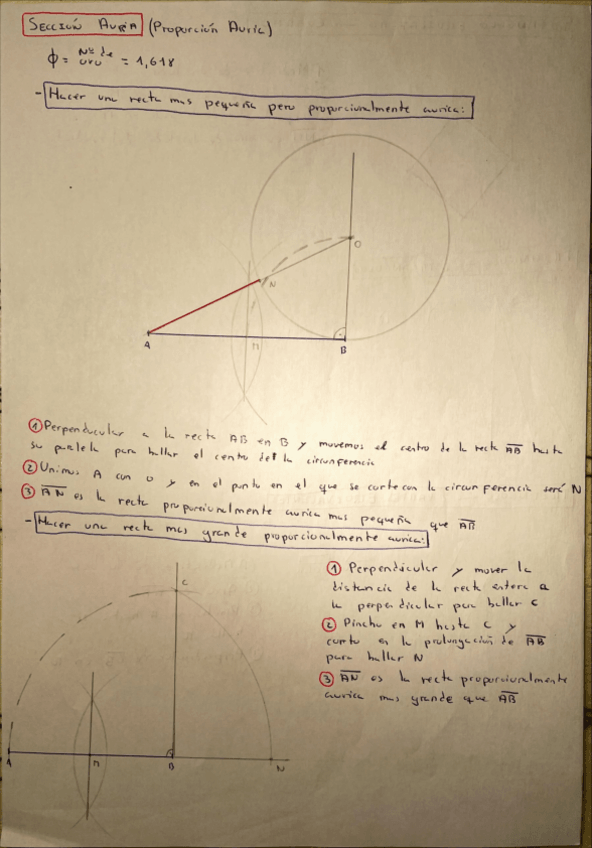 SECCIÓN AUREA (Proporción Aurica)
ϕ = Nº de oro = 1,618
- Hacer una recta mas pequeña pero proporcionalmente aurica:
O
N
A
M
B
① Perpendicular a la recta AB en B y movemos el centro de la recta AB hasta
su paralela para hallar el centro de la circunferencia
② Unimos A con O y en el punto en el que se corte con la circunferencia será N
③ AN es la recta proporcionalmente aurica mas pequeña que AB
- Hacer una recta mas grande proporcionalmente aurica:
① Perpendicular y mover la
distancia de la recta entera a
la perpendicular para hallar C
② Pincho en M hasta C y
corto en la prolongación de AB
para hallar N
③ AN es la recta proporcionalmente
aurica mas grande que AB
C
A
M
B
N